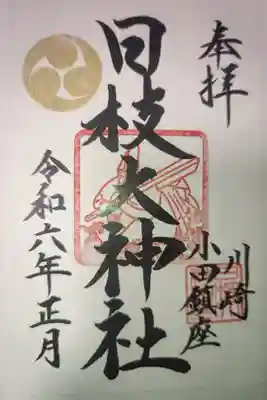 奉拝
川崎
小田鎮座
日枝大神社
令和六年正月